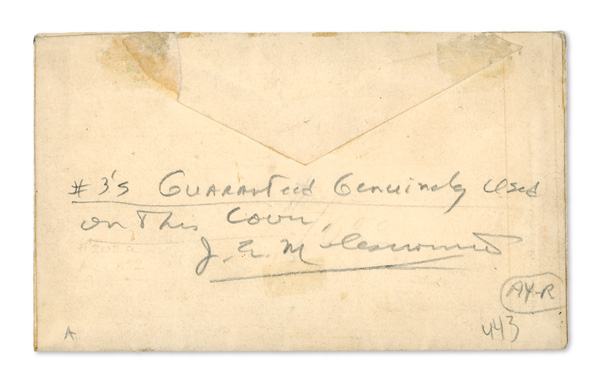 #3's Guaranteed Genuinely Used
on This Cover,
J. E. M
AY-R
443
A